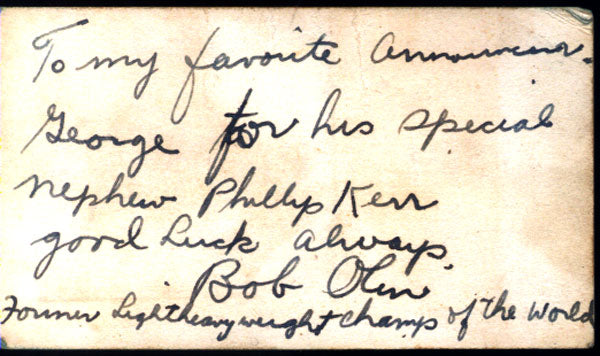 To my favorite Announcer.
George for his special
nephew Phillip Kerr
good Luck always.
Bob Olin
Former Lightheavyweight champs of the World